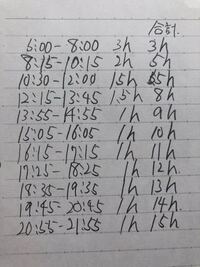 合計
5:00-8:00 3h 3h
8:15-10:15 2h 5h
10:30-12:00 1.5h 6.5h
12:15-13:45 1.5h 8h
13:55-14:55 1h 9h
15:05-16:05 1h 10h
16:15-17:15 1h 11h
17:25-18:25 1h 12h
18:35-19:35 1h 13h
19:45-20:45 1h 14h
20:55-21:55 1h 15h